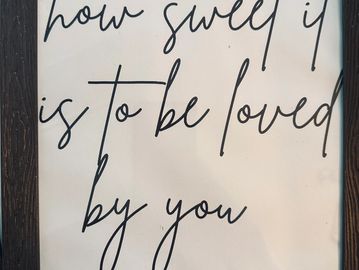 how sweet it
is to be loved
by you